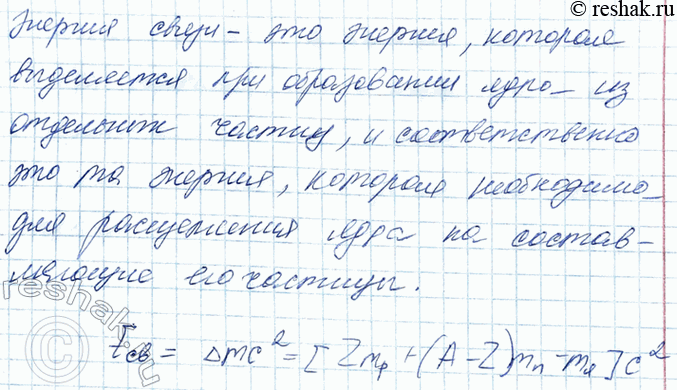 © reshak.ru
Энергия связи – это энергия, которая
выделяется при образовании ядра из
отдельных частиц, и соответственно
это та энергия, которая необходима
для расщепления ядра на состав-
ляющие его частицы.
Eсв = Δmc² = [Zmp + (A-Z)mn - mя]c²